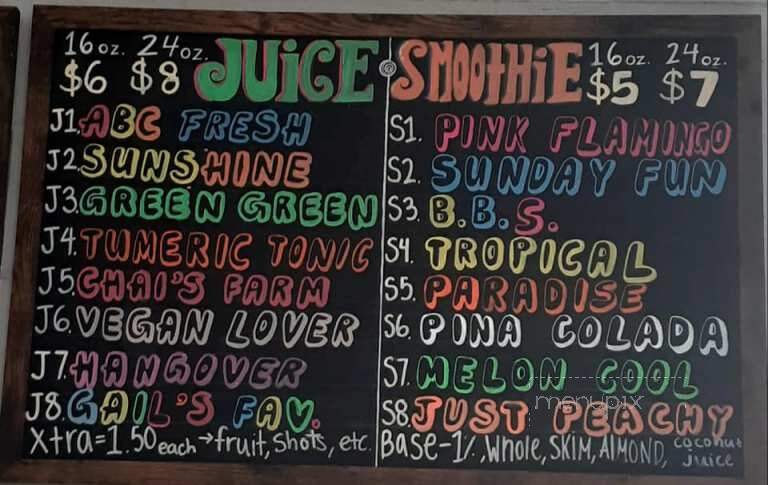 16oz. 24oz. JUiCE
$6 $8
J1. ABC FRESH
J2. SUNSHINE
J3. GREEN GREEN
J4. TUMERIC TONIC
J5. CHAI'S FARM
J6. VEGAN LOVER
J7. HANGOVER
J8. GAIL'S FAV.
Xtra=1.50 each→fruit, Shots, etc.
SMOOTHiE 16oz. 24oz.
$5 $7
S1. PINK FLAMINGO
S2. SUNDAY FUN
S3. B.B.S.
S4. TROPICAL
S5. PARADISE
S6. PINA COLADA
S7. MELON COOL
S8. JUST PEACHY
Base-1%, Whole, SKIM, AlMOND, coconut
juice
menupix